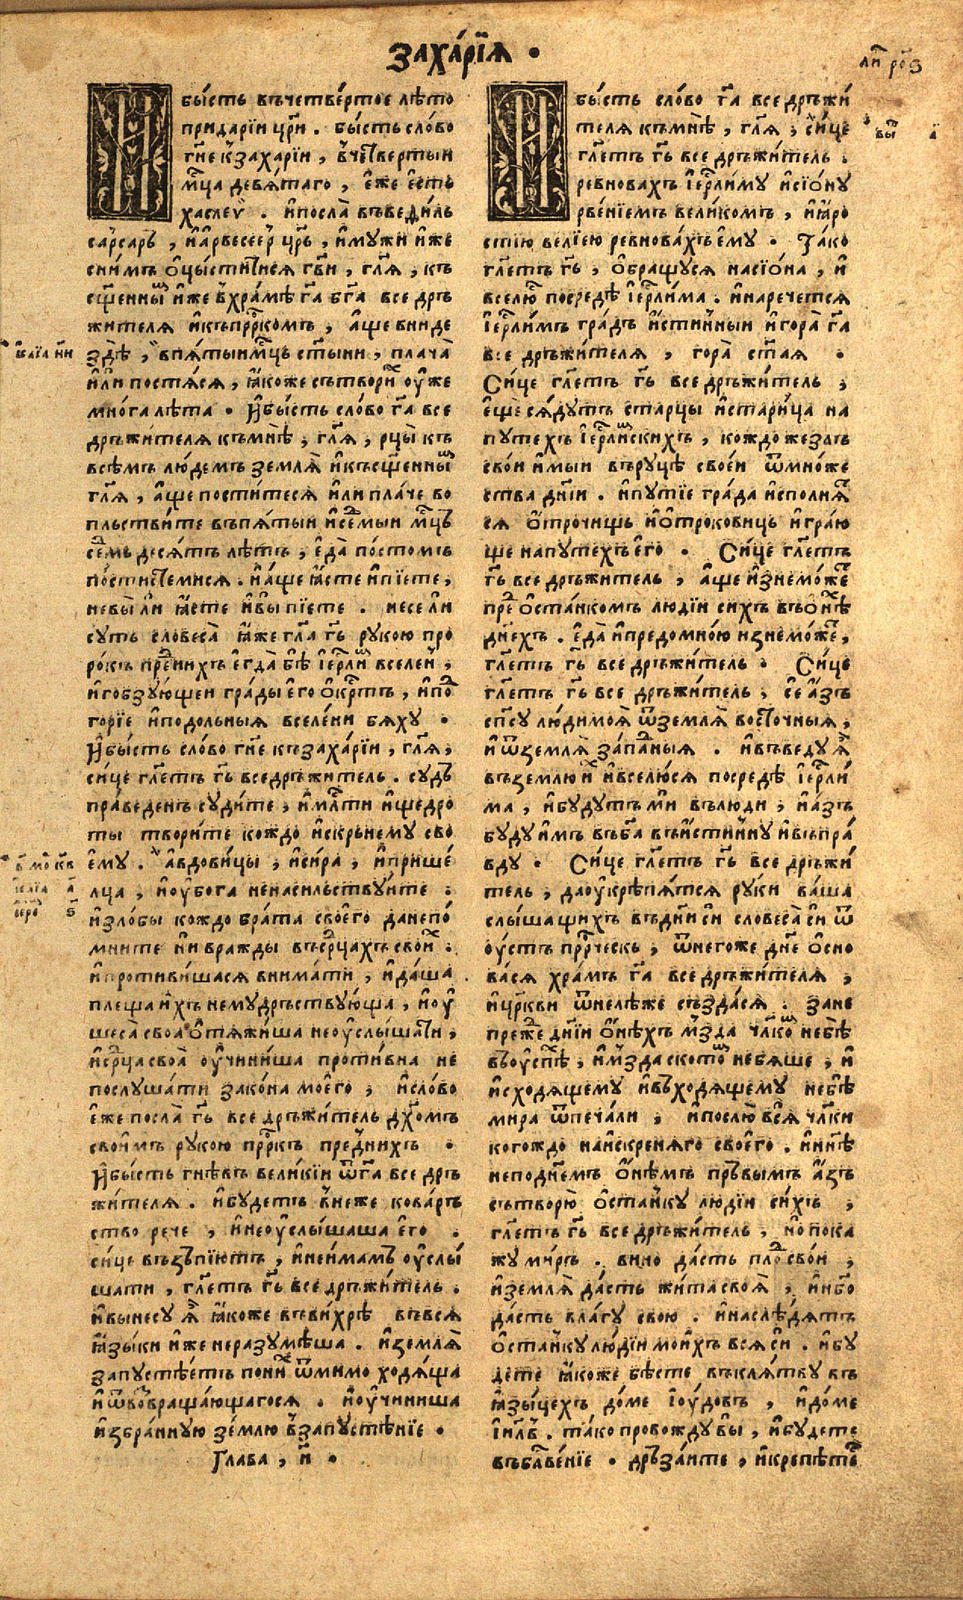 Захарїꙗ ·
И бысть въчетвертое лѣто
придарїи цр҃и . бысть слово
гн҃е кꙁахарїи , вчетвертыи
мц҃а девѧтаго , еже есть
хаслеу . ипосла въведиль
сарсаръ , иарвесеер цр҃ь , имужи иже
снимъ оцыститисѧ гв҃и , гл҃ѧ , къ
сщ҃енны иже вхрамѣ га҃ бг҃а все дръ
жителѧ икъпрр҃комъ , аще вниде
ꙁдѣ , впѧтыимц҃ь ст҃ыни , плача
или постѧсѧ , ꙗкоже сътворих уже
многа лѣта . Ибысть слово га҃ все
дръжителѧ къмнѣ , гл҃ѧ , рцы къ
всѣмъ людемъ ꙁемлѧ икъсщ҃енны
гл҃ѧ , аще поститесѧ или плаче во
пльствите въпѧтыи исемыи мц҃ь
семь десѧтъ лѣтъ , еда постомъ
постистемисѧ . иаще ꙗсте ипїете ,
невы ли ꙗсте ивы пїете . несе ли
суть словеса ꙗже гл҃а гь҃ рукою про
рокъ преднихъ егда бѣ іерл҃им вселен ,
игобꙁующеи грады его окртъ , ипо
горїе иподольныѧ вселени бѧху .
Ибысть слово гн҃е къꙁахарїи , гл҃ѧ ,
сице гл҃етъ гь҃ вседръжитель . судъ
праведенъ судите , имл҃ти ищедро
ты творите кождо искрьнему сво
ему . авдовицы , исира , иприше
лца , иоубога ненасильствуите .
иꙁлобы кождо брата своего данепо
мните ни вражды въсрц҃ахъ своих .
ипротивишасѧ внимати , идаша
плеща ихъ немудръствующа , иоу
шеса своа отѧжиша неоуслышати ,
исрц҃а своа оучиниша противна не
послушати ꙁакона моего , ислово
еже посла гь҃ все дръжитель дх҃омъ
своимъ рукою прр҃къ преднихъ .
Ибысть гнѣвъ великїи ѿга҃ все дръ
жителѧ . ибудетъ внеже коваръ
ство рече , инеоуслышаша его .
сице въꙁъпїютъ , инеимамъ оуслы
шати , гл҃етъ гь҃ вседръжитель .
ивынесу ѧ ꙗкоже въвихрѣ въвсѧ
ꙗꙁыки иже нераꙁумѣша . иꙁемлѧ
ꙁапустѣетъ поних ѿмимо ходѧща
иѿвоꙁвращающагосѧ . иоучиниша
иꙁбранную ꙁемлю вꙁапустѣнїе .
Глава , и҃ .
И бысть слово га҃ вседръжи
телѧ къмнѣ , гл҃ѧ , сице
гл҃етъ гь҃ вседръжитель .
ревновахъ іерл҃иму исїону
рвенїемъ великомъ , иꙗро
стїю велїею ревновахъ ему . Тако
гл҃етъ гь҃ , обращусѧ насїона , и
вселюс посредѣ іерл҃има . инаречетсѧ
іерл҃имъ градъ истинныи игора га҃
все дръжителѧ , гора ст҃аѧ .
Сице гл҃етъ гь҃ вседръжитель ,
еще сѧдутъ старцы истарица на
путехъ іерл҃имскихъ , кождо жеꙁлъ
свои имыи въруцѣ своеи ѿмноже
ства днїи . ипутїе града исполнѧт
сѧ отрочищь иотроковиць играю
ще напутехъ его . Сице гл҃етъ
гь҃ вседръжитель , аще иꙁнеможет
пред останкомъ людїи сихъ въонѣ
днехъ . еда ипредомною иꙁнеможет ,
гл҃етъ гь҃ вседръжитель . Сице
гл҃етъ гь҃ вседръжитель , се аꙁъ
сп҃су людимоѧ ѿꙁемлѧ восточныѧ ,
иѿꙁемлѧ ꙁападныѧ . ивъведу ѧ
въꙁемлю их ивселюсѧ посредѣ іерл҃и
ма , ибудутъ ми вълюди , иаꙁъ
буду имъ въба҃ въистинну ивъпра
вду . Сице гл҃етъ гь҃ вседръжи
тель , даоукрѣпѧтсѧ руки ваша
слышащихъ въдни си словеса си ѿ
оустъ прр҃ческъ , ѿнегоже дн҃е осно
васѧ храмъ га҃ вседръжителѧ ,
ицр҃кви ѿнелѣже съꙁдасѧ . ꙁане
преже днїи онѣхъ мꙁда чл҃ком небѣ
въоуспѣ , имꙁда скотом небѧше , и
исходѧщему ивъходѧщему небѣ
мира ѿпечали , ипослю всѧ чл҃ки
когождо наискренѧго своего . инн҃ѣ
неподнемъ онѣмъ прьвымъ аꙁъ
сътворю останку людїи сихъ ,
гл҃етъ гь҃ вседръжитель , нопока
жу миръ . вино дасть плод свои ,
иꙁемлѧ дасть жита своѧ , инбо
дасть влагу свою . инаслѣдѧтъ
останку людїи моихъ всѧ си . ибу
дете ꙗкоже бѣсте въклѧтву въ
ꙗꙁыцехъ доме іоудовъ , идоме
іил҃въ . тако провожду вы , ибудете
въбл҃венїе . дрьꙁаите , икрепитес